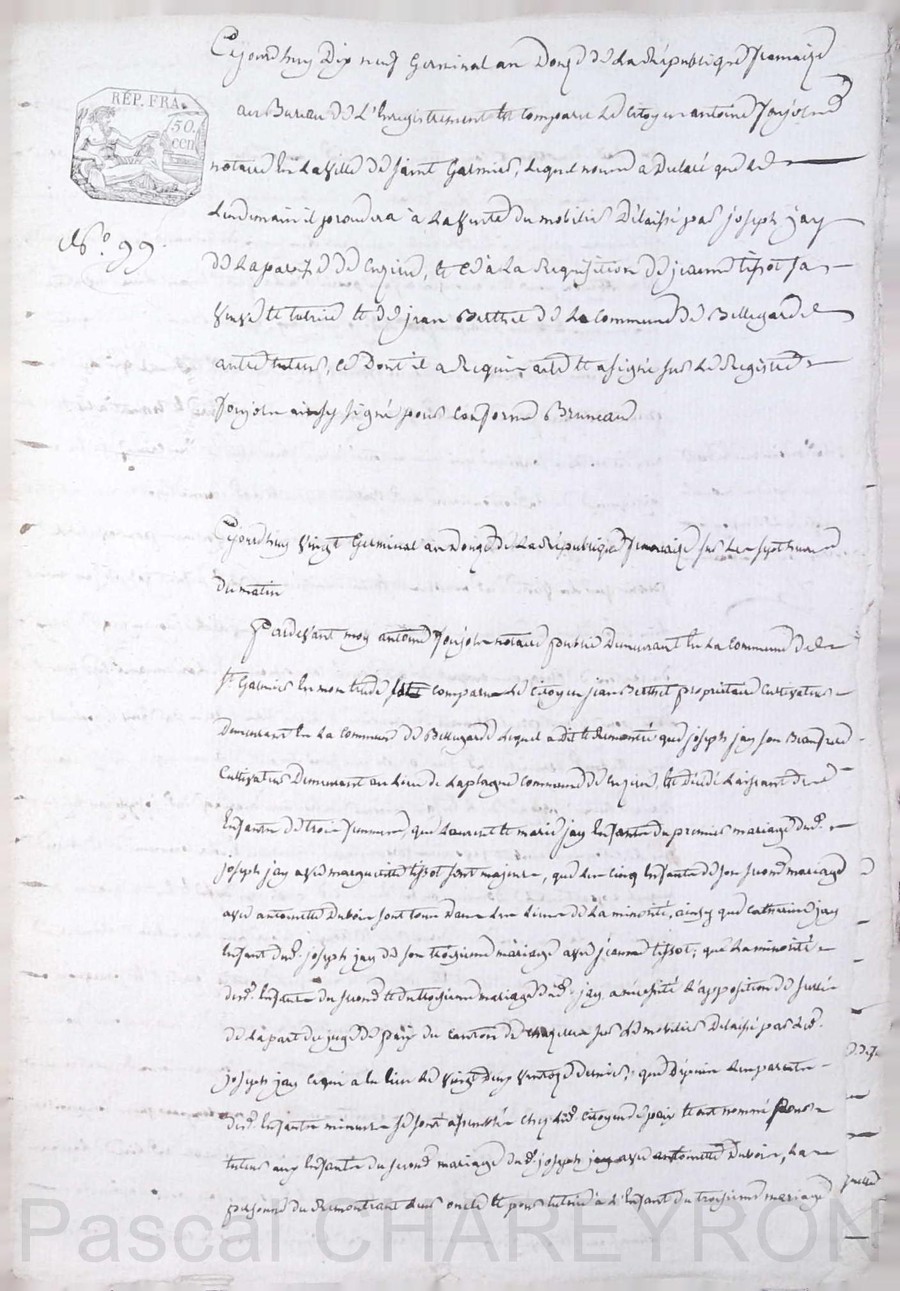 RÉP. FRA.
50.
cen
N.° 99
Cejourdhuy Dix neuf Germinal an Douze de La République francaise
au Bureau de L'Enregistrement est comparu Le Citoyen antoine
notaire en La Ville de Saint Galmier, Lequel nous a Declaré que Le
Lendemain il procedera à La Vente du mobilier Délaissé par joseph jay
de La par de Cuzieu, et ce à La Requisition de jeanne tissot sa
Veuve et tutrice et de jean Berthet de La Commune de Bellegarde
autre tuteur, ce Dont il a Requis acte et a signé sur Le Registre
ainsy signé pour conforme Bruneau
Cejourdhuy Vingt Germinal an Douze de La République francaise sur Les sept heures
Du matin
Pardevant moy antoine notaire public Demeurant en La Commune de
St. Galmier en mon etude est comparu Le Citoyen jean Berthet propriétaire Cultivateur
Demeurant en La Commune de Bellegarde Lequel a dit et Remontré que joseph jay son Beaufrere
Cultivateur Demeurant au Lieu de Laplagne Commune de Cuzieu, est Décédé Laissant des
Enfants de trois femmes, que Laurent et marie jay Enfants du premier mariage dud.
joseph jay avec marguerite tissot sont majeurs, que Les cinq Enfants de son second mariage
avec antoinette Duboir sont tous Dans Les Liens de La minorité, ainsy que Catherine jay
Enfant dud. joseph jay de son troisieme mariage avec jeanne tissot; que La minorité
desd. Enfants du second et du troisieme mariage dud. jay a necessité L'apposition de scellés
de La part du juge de paix du Canton de sur Le mobilier Delaissé par Led.
joseph jay ce qui a eu lieu Le Vingt deux Ventose Dernier; que Depuis Les parents
desd. Enfants mineurs se sont assemblés chez Led. Citoyen de paix et ont nommé pour
tuteur aux Enfants du second mariage dud. joseph jay avec antoinette Duboir, La
personne du Remontrant Leur oncle et pour tutrice à L'Enfant du troisieme mariage
Pascal CHAREYRON